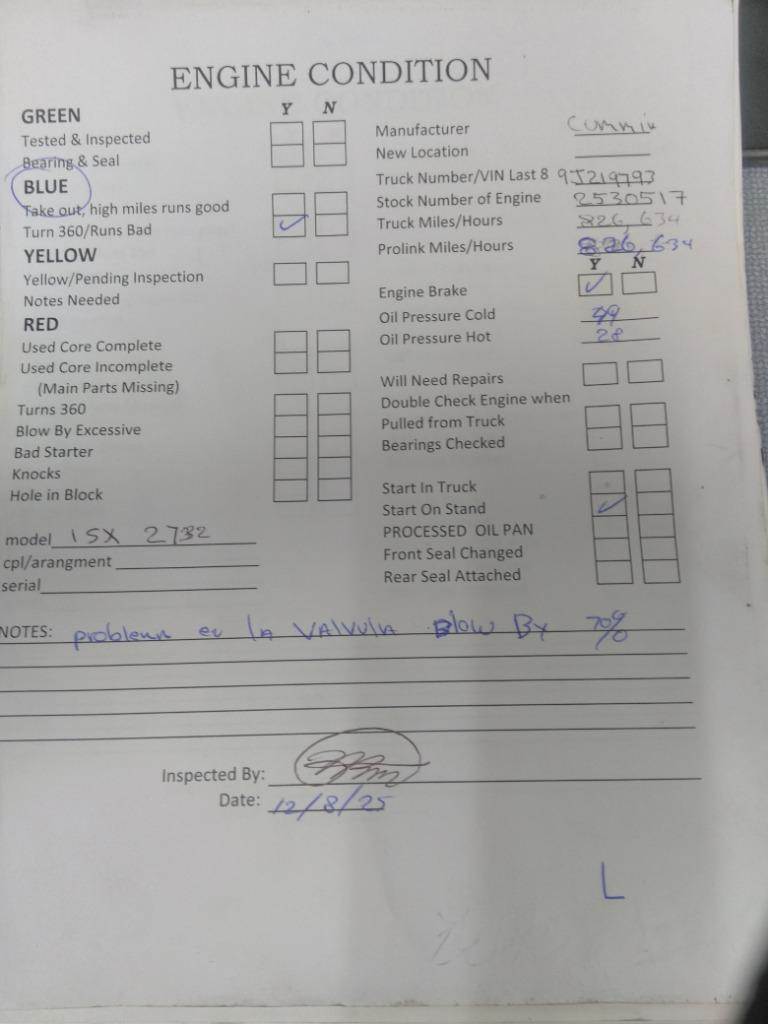 ENGINE CONDITION
Y N
GREEN
Tested & Inspected
Bearing & Seal
BLUE
Take out, high miles runs good
Turn 360/Runs Bad ✓
YELLOW
Yellow/Pending Inspection
Notes Needed
RED
Used Core Complete
Used Core Incomplete
(Main Parts Missing)
Turns 360
Blow By Excessive
Bad Starter
Knocks
Hole in Block
model ISX 2732
cpl/arangment
serial
Manufacturer Cummin
New Location
Truck Number/VIN Last 8 9J219793
Stock Number of Engine 2530517
Truck Miles/Hours 826,634
Prolink Miles/Hours 826,634
Y N
Engine Brake ✓
Oil Pressure Cold 49
Oil Pressure Hot 28
Will Need Repairs
Double Check Engine when
Pulled from Truck
Bearings Checked
Start In Truck
Start On Stand ✓
PROCESSED OIL PAN
Front Seal Changed
Rear Seal Attached
NOTES: problem en la VALVULA Blow By 70%
Inspected By:
Date: 12/8/25
L